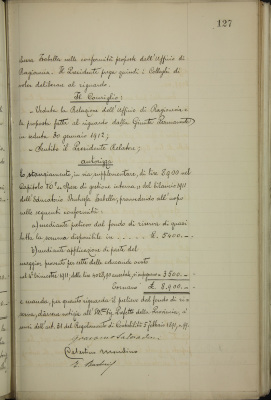 127
Luisa Isabella nelle conformità proposte dall'Ufficio di
Ragioneria. Il Presidente prega quindi i Colleghi di
voler deliberare al riguardo.
Il Consiglio:
- Veduta la Relazione dell'Ufficio di Ragioneria e
le proposte fatte al riguardo dalla Giunta Permanente
in seduta 30 gennaio 1912;
- Sentito il Presidente Relatore;
autorizza
lo stanziamento, in via supplementare, di lire 8.900 nel
Capitolo 20° Spese di gestione interna del bilancio 1911
dell'Educatorio Isabella, provvedendo all'uopo
nelle seguenti conformità:
a) mediante prelievo dal fondo di riserva di quasi
tutta la somma disponibile in ... £. 5400.-
b) mediante applicazione di parte del
maggior provento per rette delle educande avuto
nel 1911, 3500.-
Tornano £. 8.900.-
e manda, per quanto riguarda il prelievo dal fondo di ri-
serva, darsene notizia all' Prefetto della Provincia, a
sensi dell'art. 31 del Regolamento di Contabilità 5 febbraio 1891, n. 99.